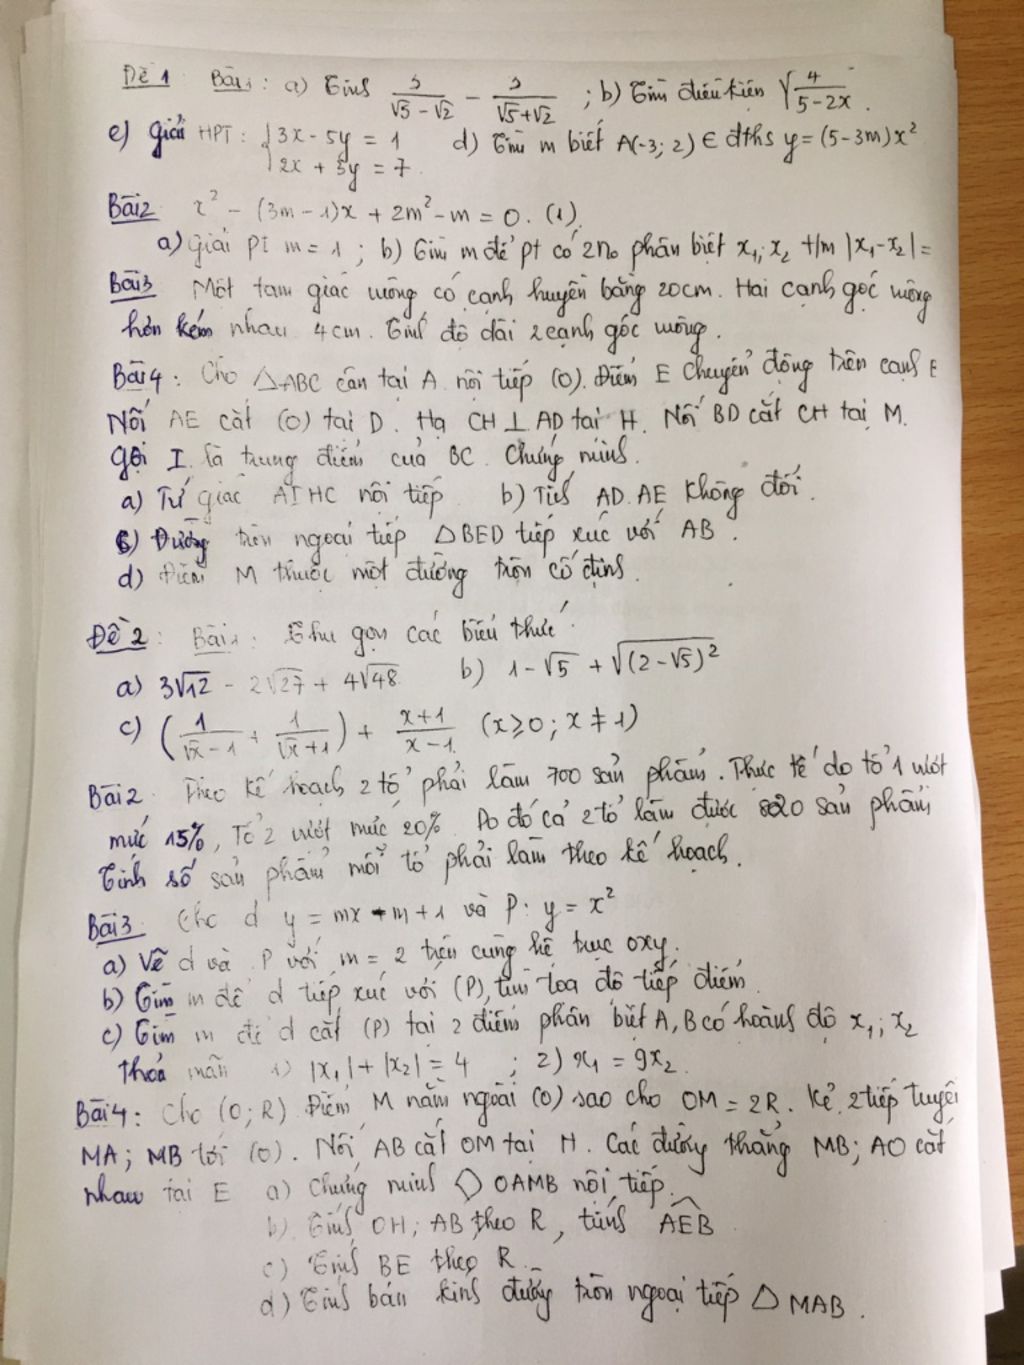 Đề 1 : Bài 1 : a) Tính 3/(√5-√2) - 3/(√5+√2) ; b) Tìm điều kiện √(4/(5-2x)).
c) Giải HPT : { 3x - 5y = 1 d) Tìm m biết A(-3; 2) ∈ đths y = (5-3m)x²
2x + 5y = 7.
Bài 2 x² - (3m-1)x + 2m² - m = 0. (1).
a) Giải pt m = 1 ; b) Tìm m để pt có 2 no phân biệt x₁; x₂ t/m |x₁-x₂| =
Bài 3 Một tam giác vuông có cạnh huyền bằng 20cm. Hai cạnh góc vuông
hơn kém nhau 4cm. Tính độ dài 2 cạnh góc vuông.
Bài 4 : Cho △ABC cân tại A nội tiếp (O). Điểm E chuyển động trên cạnh
Nối AE cắt (O) tại D. Hạ CH ⊥ AD tại H. Nối BD cắt CH tại M.
Gọi I là trung điểm của BC. Chứng minh.
a) Tứ giác AIHC nội tiếp b) Tích AD.AE không đổi.
c) Đường tròn ngoại tiếp △BED tiếp xúc với AB.
d) Điểm M thuộc một đường tròn cố định.
Đề 2 : Bài 1 : Thu gọn các biểu thức
a) 3√12 - 2√27 + 4√48. b) 1 - √5 + √((2-√5)²)
c) (1/(√x-1) + 1/(√x+1)) + (x+1)/(x-1) (x ≥ 0; x ≠ 1)
Bài 2 Theo kế hoạch 2 tổ phải làm 700 sản phẩm. Thực tế do tổ 1 vượt
mức 15%, Tổ 2 vượt mức 20%. Do đó cả 2 tổ làm được 820 sản phẩm
Tính số sản phẩm mỗi tổ phải làm theo kế hoạch.
Bài 3 Cho d y = mx - m + 1 và P : y = x²
a) Vẽ d và P với m = 2 trên cùng hệ trục oxy.
b) Tìm m để d tiếp xúc với (P), tìm tọa độ tiếp điểm.
c) Tìm m để d cắt (P) tại 2 điểm phân biệt A, B có hoành độ x₁; x₂
thỏa mãn 1) |x₁| + |x₂| = 4 ; 2) x₁ = 9x₂.
Bài 4 : Cho (O; R). Điểm M nằm ngoài (O) sao cho OM = 2R. Kẻ 2 tiếp tuyến
MA; MB tới (O). Nối AB cắt OM tại H. Các đường thẳng MB; AO cắt
nhau tại E a) Chứng minh ◇ OAMB nội tiếp.
b) Tính OH; AB theo R, tính AEB
c) Tính BE theo R.
d) Tính bán kính đường tròn ngoại tiếp △ MAB.